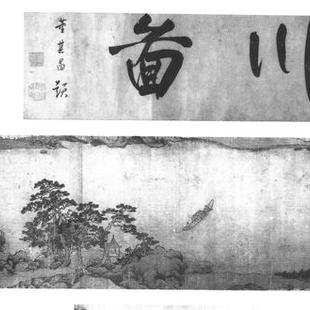 川圖
董其昌題